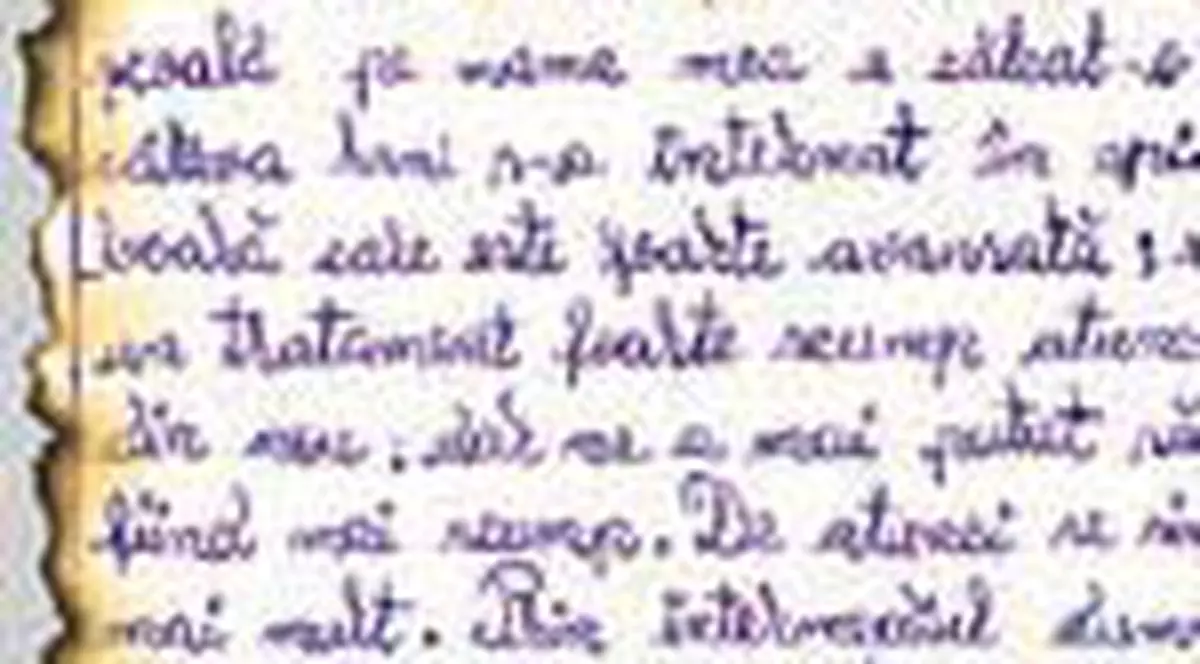 școală pe mama mea a călcat-o
câteva luni s-a internat în
boală care este foarte avansată ;
un tratament foarte scump atunci
din nou , dar nu a mai putut
fiind mai scump. De atunci se
mai mult. Prin intermediul